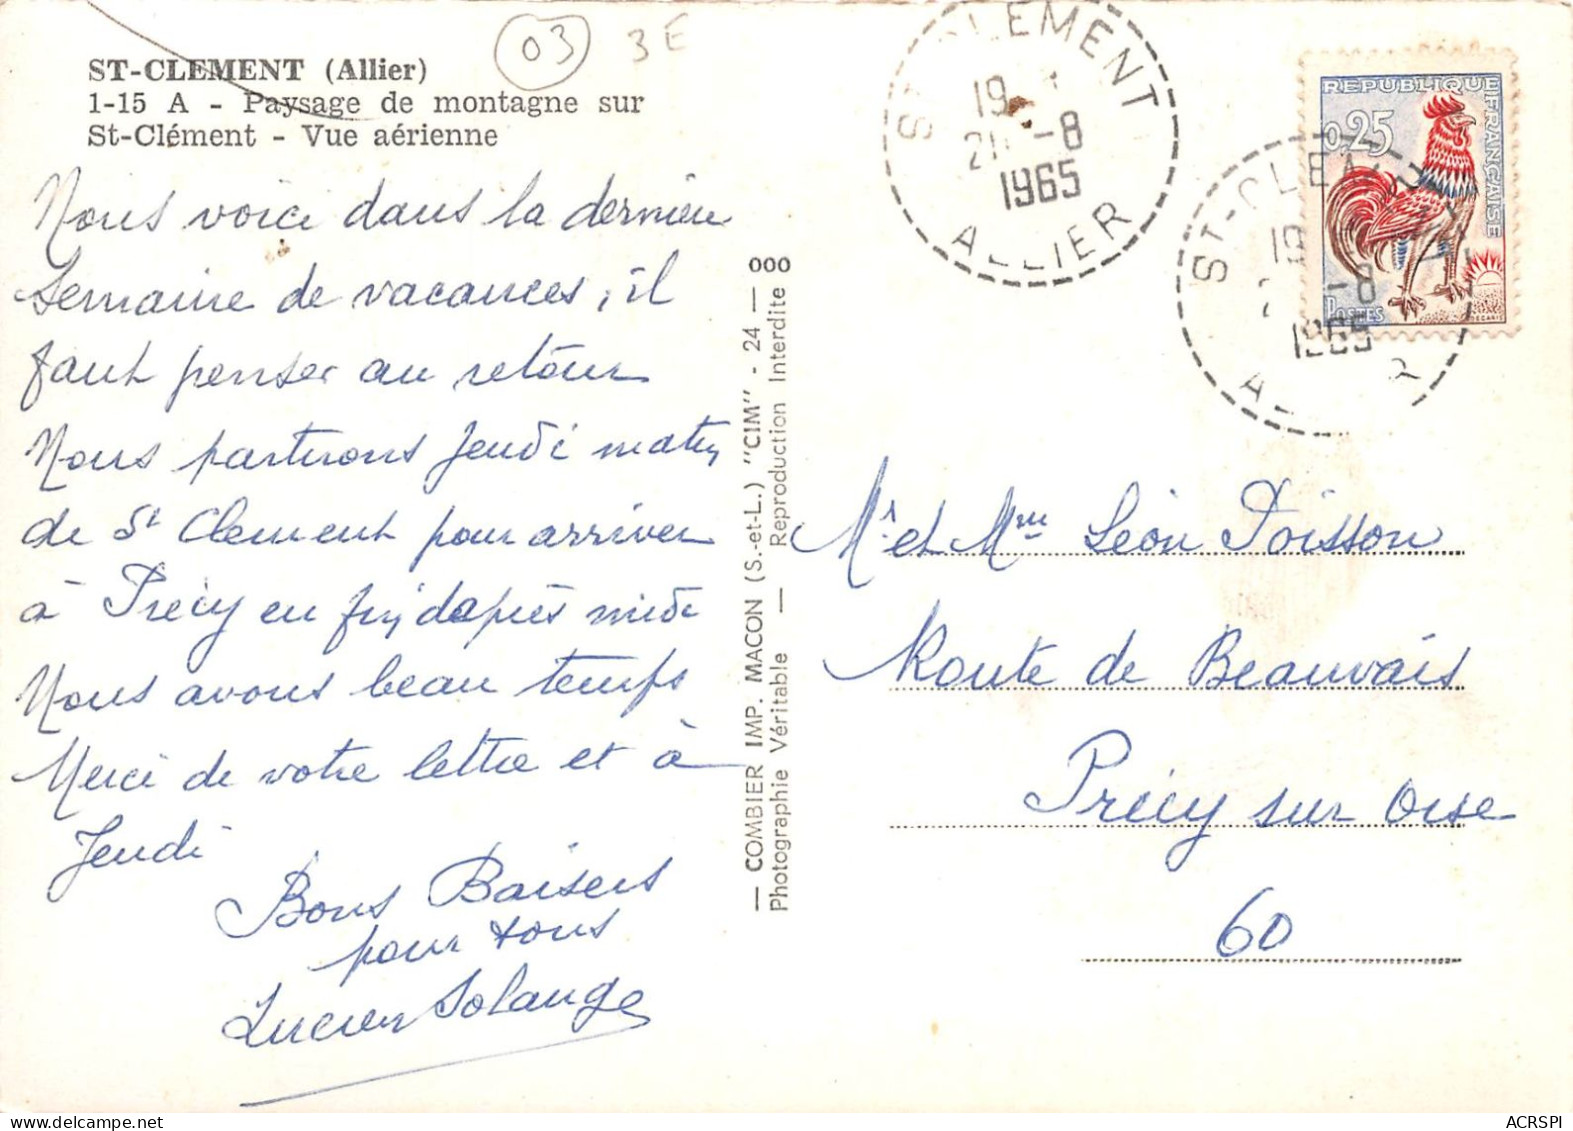 03 3E
ST-CLEMENT (Allier)
1-15 A - Paysage de montagne sur
St-Clément - Vue aérienne
Nous voici dans la dernière
Semaine de vacances, il
faut penser au retour
Nous partirons Jeudi matin
de St Clement pour arriver
à Précy en fin d'après midi
Nous avons beau temps
Merci de votre lettre et à
Jeudi
Bons Baisers
pour tous
Lucien Solange
000
— COMBIER IMP. MACON (S.-et-L.) "CIM" - 24 —
Photographie Véritable — Reproduction Interdite
ST-CLEMENT
19
21 -8
1965
ALLIER
REPUBLIQUE FRANÇAISE
0,25
POSTES
DECARIS
ST-CLEMENT
19
2 -8
1965
ALLIER
Mr et Mme Léon Poisson
Route de Beauvais
Précy sur Oise
60
ACRSPI